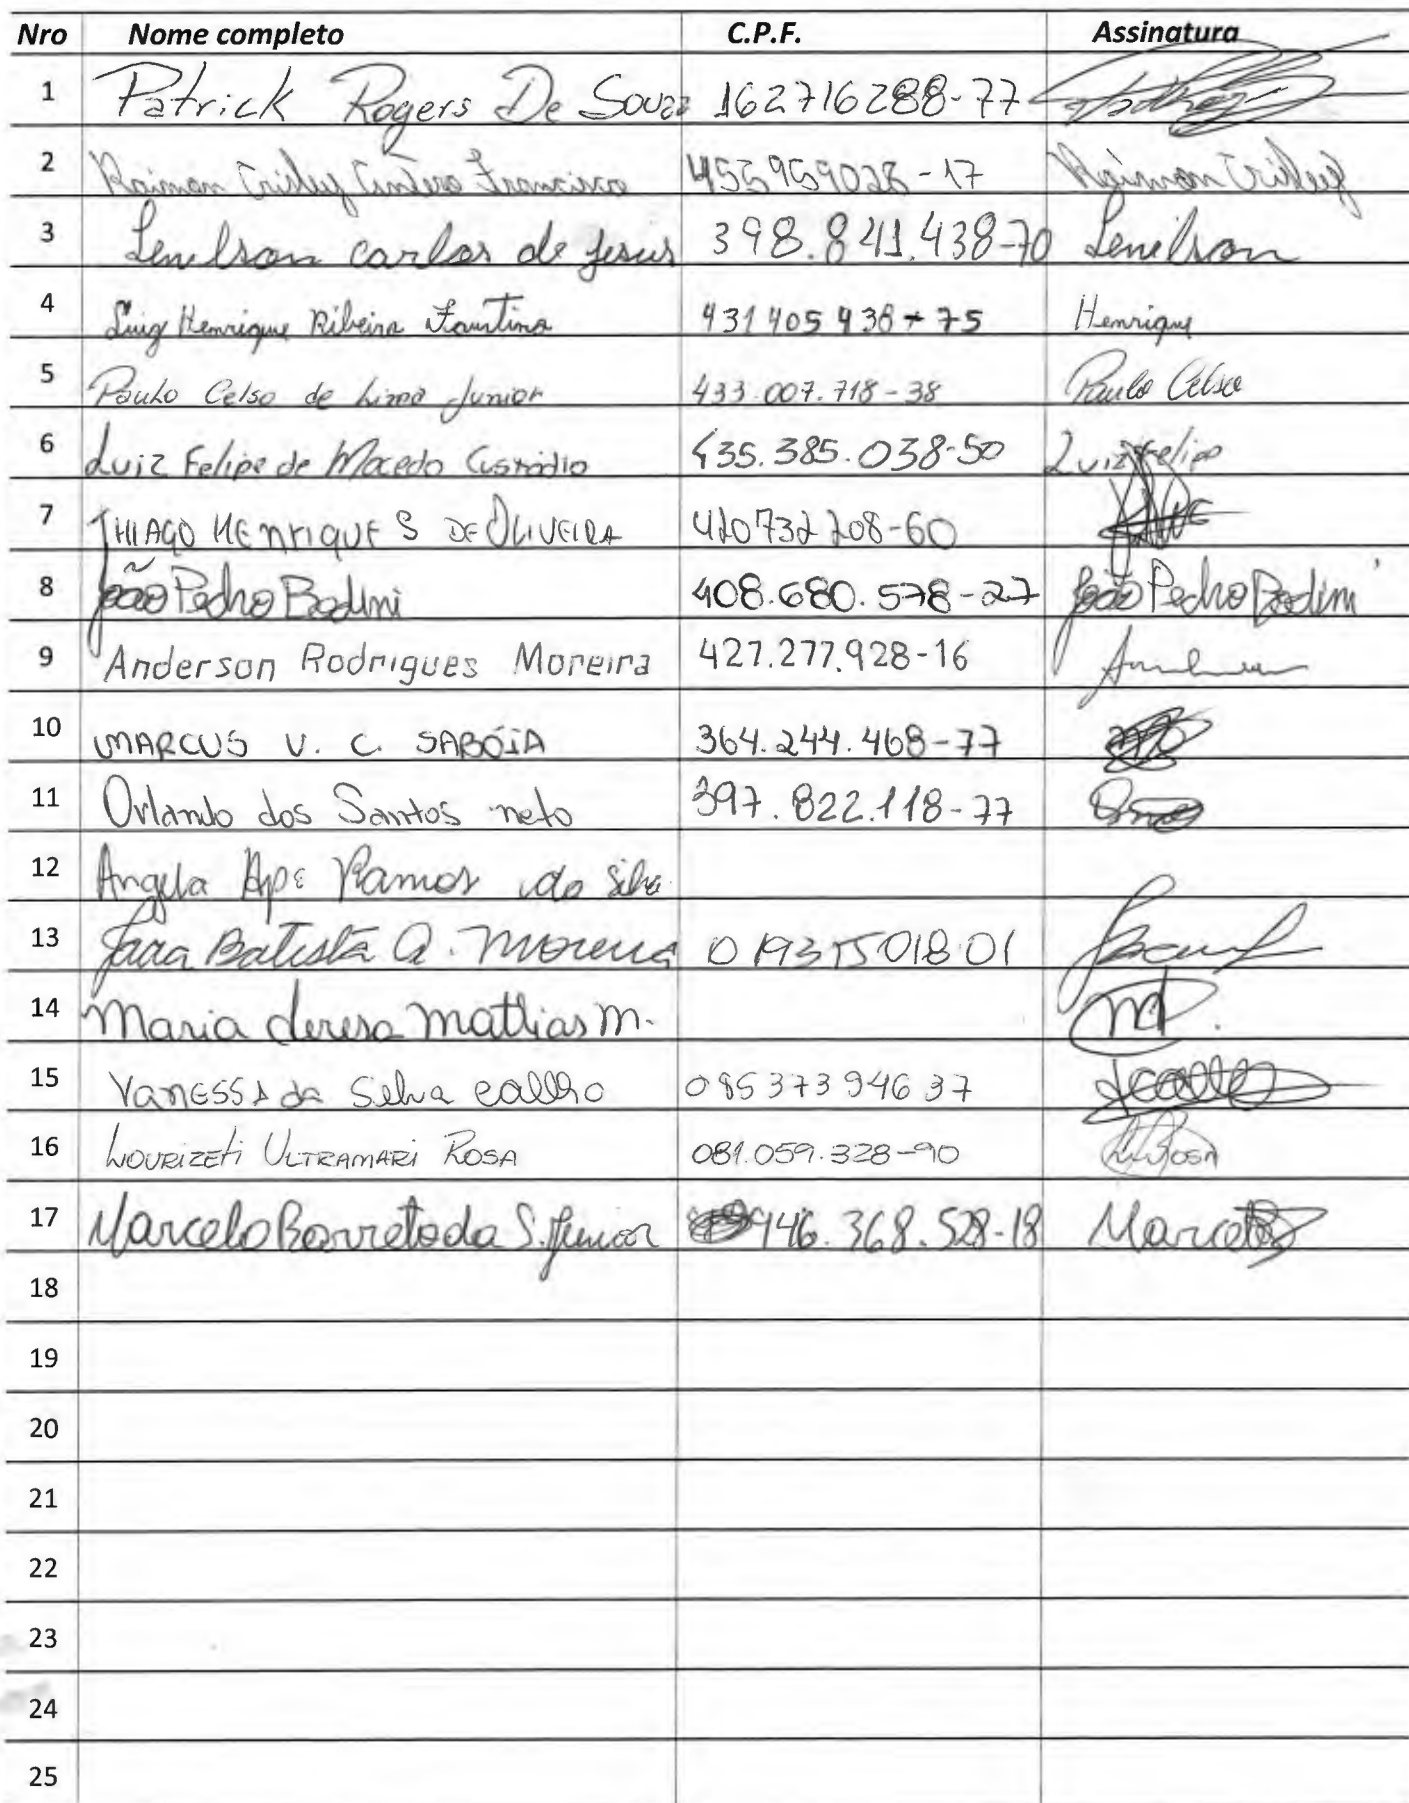 Nro Nome completo C.P.F. Assinatura
1 Patrick Rogers De Souza 162716288-77
2 Raimon Crisley Francisco 455959028-17 Raimon Crisley
3 Lenilson carlos de jesus 398.841.438-70 Lenilson
4 Luiz Henrique Ribeiro Faustino 431405438-75 Henrique
5 Paulo Celso de Lima Junior 433.007.718-38 Paulo Celso
6 Luiz Felipe de Macedo Custódio 435.385.038-50 Luiz Felipe
7 THIAGO HENriQUE S DE OLIVEIRA 420732208-60
8 João Pedro Bodini 408.680.578-27 João Pedro Bodini
9 Anderson Rodrigues Moreira 427.277.928-16
10 MARCUS V. C. SABÓIA 364.244.468-77
11 Orlando dos Santos neto 397.822.118-77
12 Angela Apª Ramos da Silva
13 Batista A. Moreira 019315018 01
14 Maria deresa Mattias M.
15 Vanessa da Silva 085373946 37
16 LOURIZETi ULTRAMARi ROSA 081.059.328-90
17 Marcelo Barreto da S. Junior 946.368.528-18 Marcelo
18
19
20
21
22
23
24
25